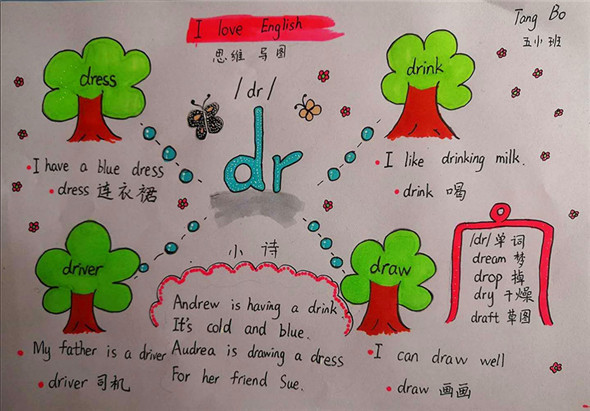 I love English
思维导图
Tang Bo
五小班
/dr/
dr
dress
I have a blue dress
dress 连衣裙
drink
I like drinking milk.
drink 喝
driver
My father is a driver
driver 司机
小诗
Andrew is having a drink
It's cold and blue.
Audrea is drawing a dress
For her friend Sue.
draw
I can draw well
draw 画画
/dr/单词
dream 梦
drop 掉
dry 干燥
draft 草图